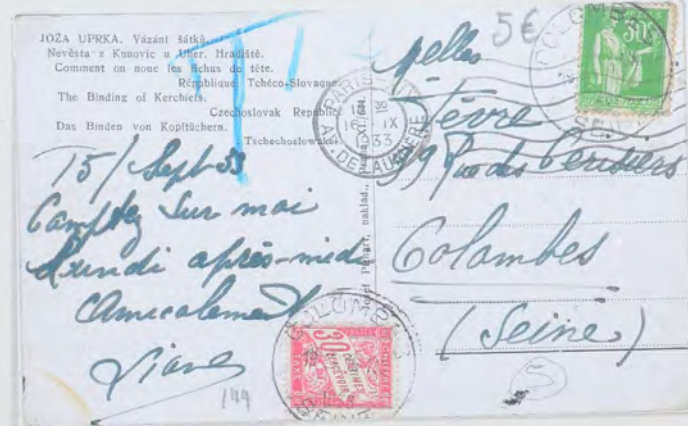 JOŽA UPRKA. Vázání šátků.
Nevěsta z Kunovic u Uher. Hradiště.
Comment on noue les fichus de tête.
République Tchéco-Slovaque
The Binding of Kerchiefs.
Czechoslovak Republic
Das Binden von Kopftüchern.
Tschechoslowakei
15/Sept 33
Comptez sur moi
Lundi après-midi
Amicalement
Liane
149
5€
Melles
Fèvre
Rue des Cerisiers
Colombes
(Seine)
5
T
PARIS
18
16 IX
33
AV. DE LAUMIERE
COLOMBES
SEINE
30c
COLOMBES
30
CENTIMES
A PERCEVOIR
SEINE